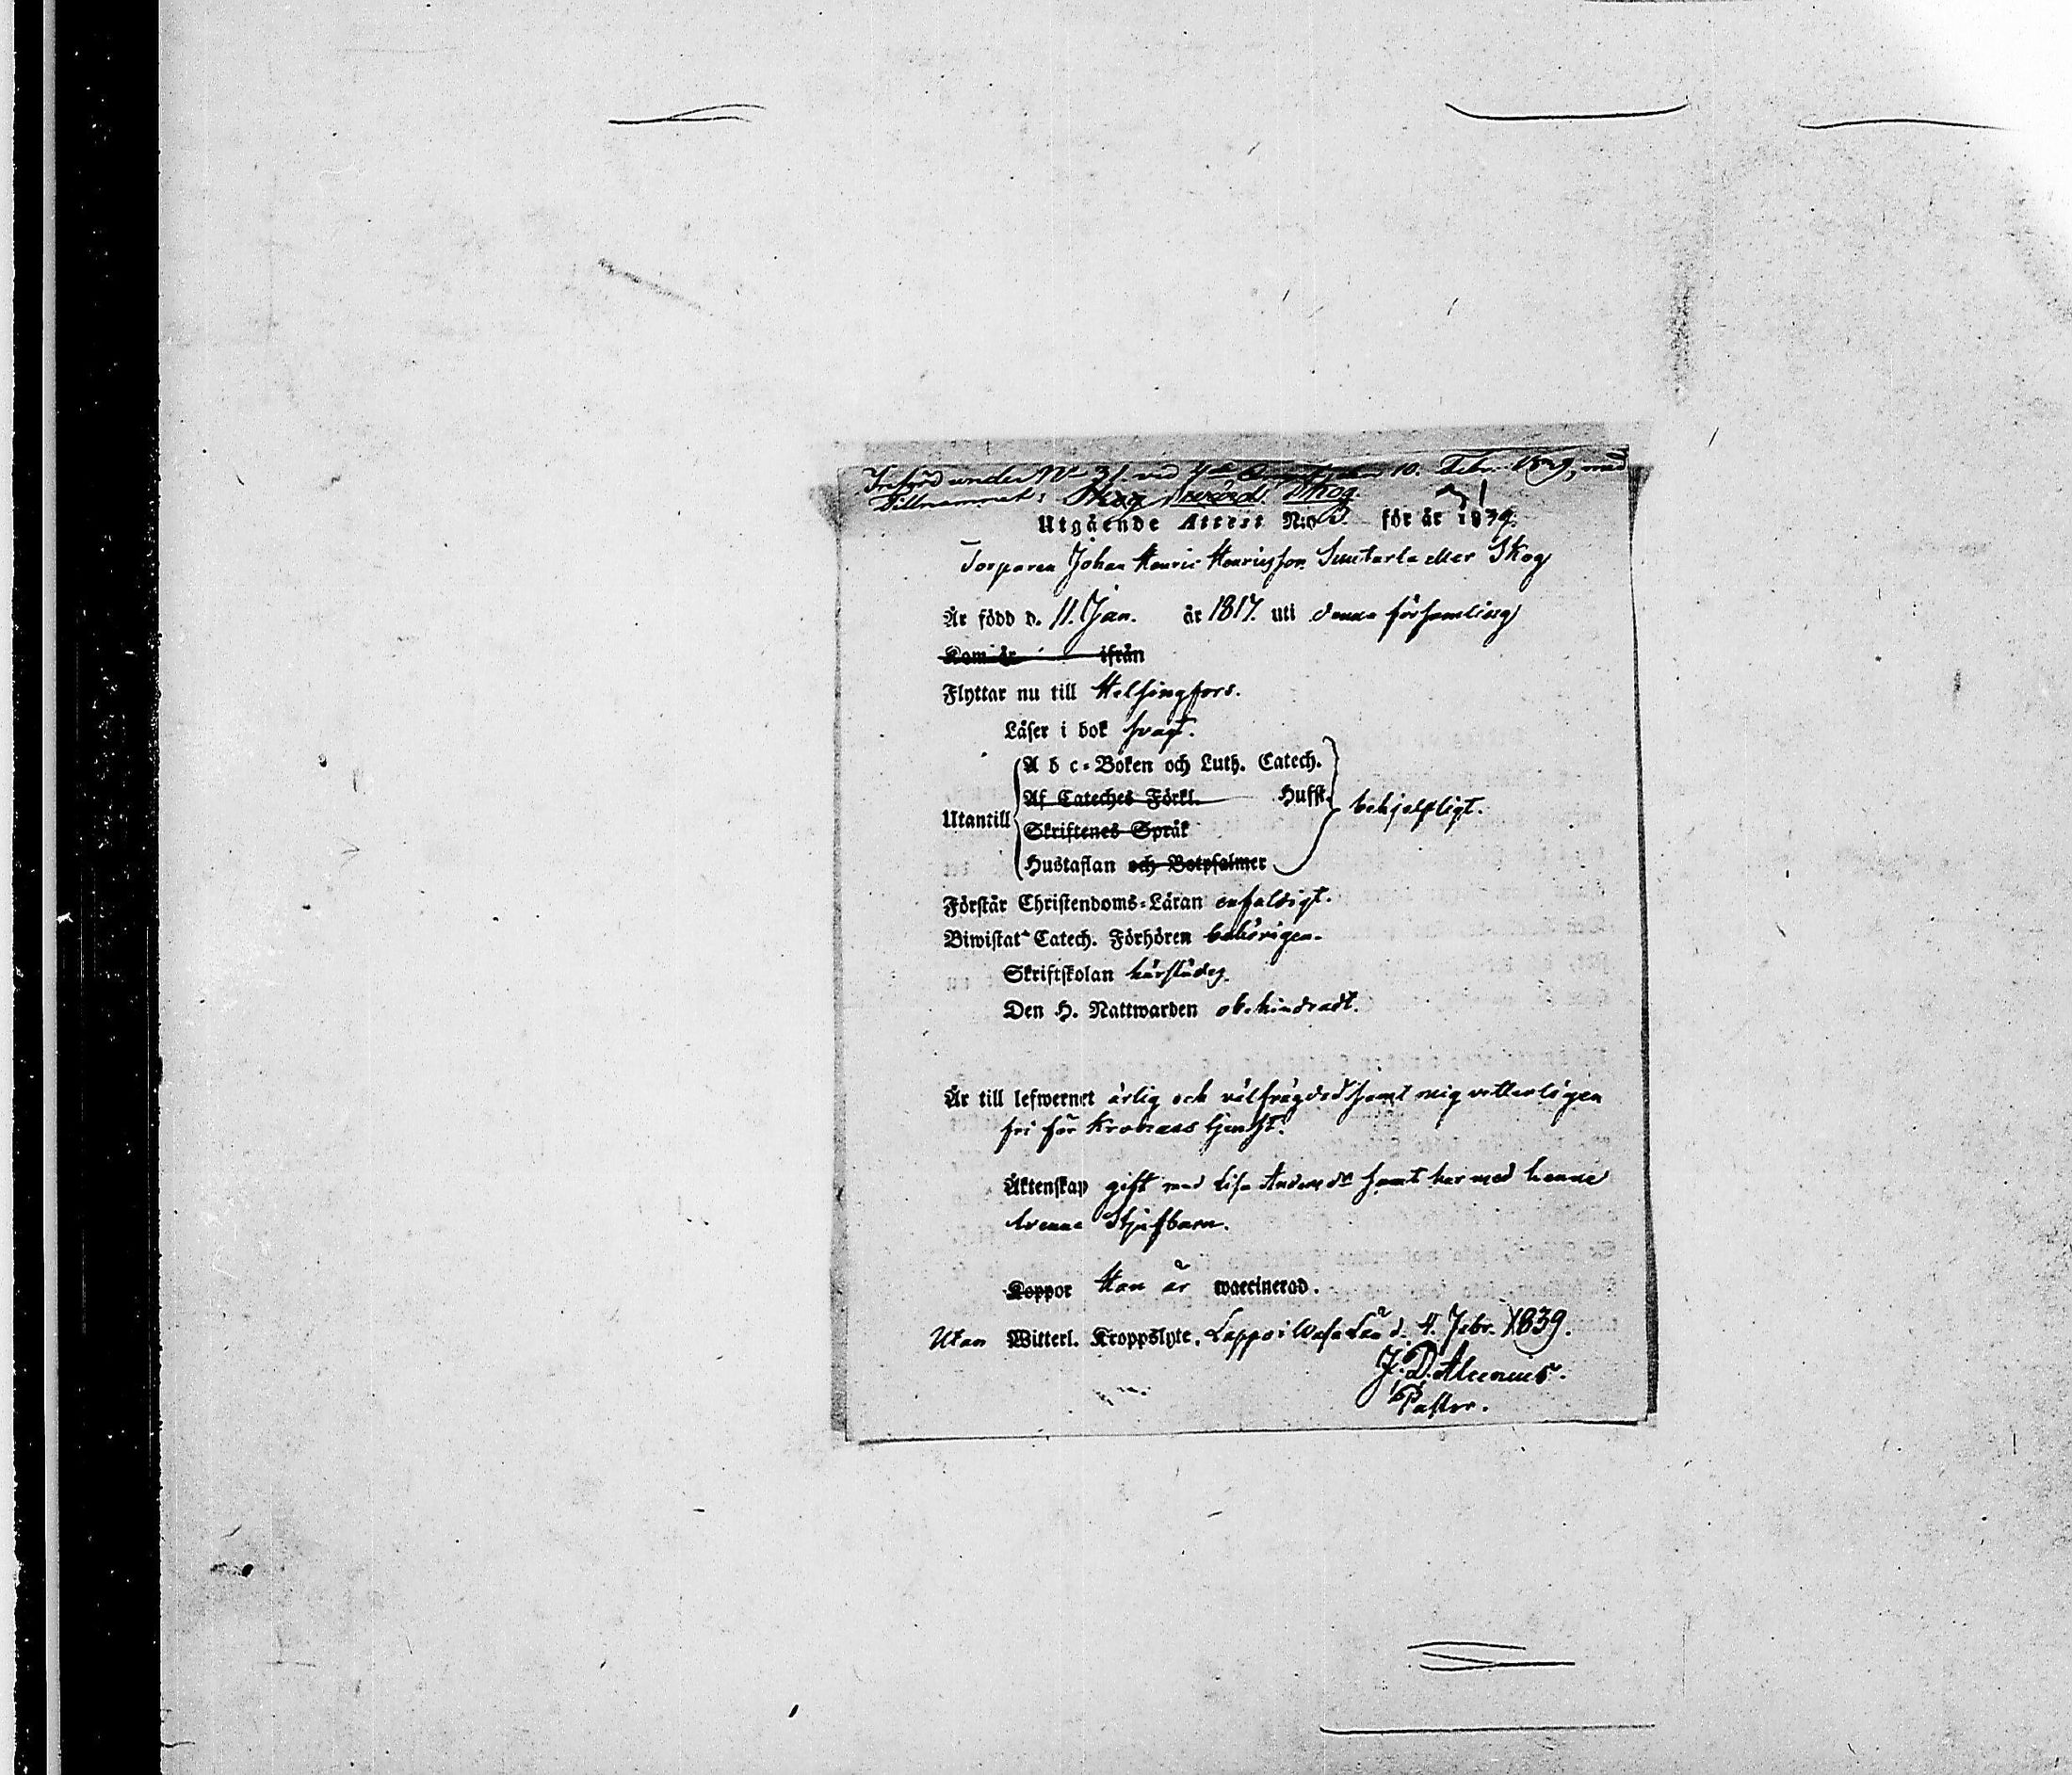 Införd under No 31. vid 4de 10. Febr. 1839, med
Tillnamnet: Skog, Swärd. Skog.
Utgående Attest N:o 3. för år 1839.
Torparen Johan Henric Henricsson Luutarla eller Skog
Är född d. 11. Jan. år 1817. uti denna församling
Kom år ifrån
Flyttar nu till Helsingfors.
Läser i bok svagt.
A b c-Boken och Luth. Catech.
Af Cateches Förkl. Hufst.
Utantill behjelpligt.
Skriftenes Språk
Hustaflan och Botpsalmer
Förstår Christendoms-Läran enfaldigt.
Biwistat Catech. Förhören behörigen.
Skriftskolan härstädes.
Den H. Nattwarden obehindradt.
Är till lefwernet ärlig och välfrägdad samt mig vetterligen
fri för Kronans tjenst.
Äktenskap gift med Lisa Andersdr samt har med henne
trenne Stjufbarn.
Koppor Han är waccinerad.
Utan Witterl. Kroppslyte. Lappo i Wasa Län d. 4. Febr. 1839.
J. D. Alcenius.
Pastor.